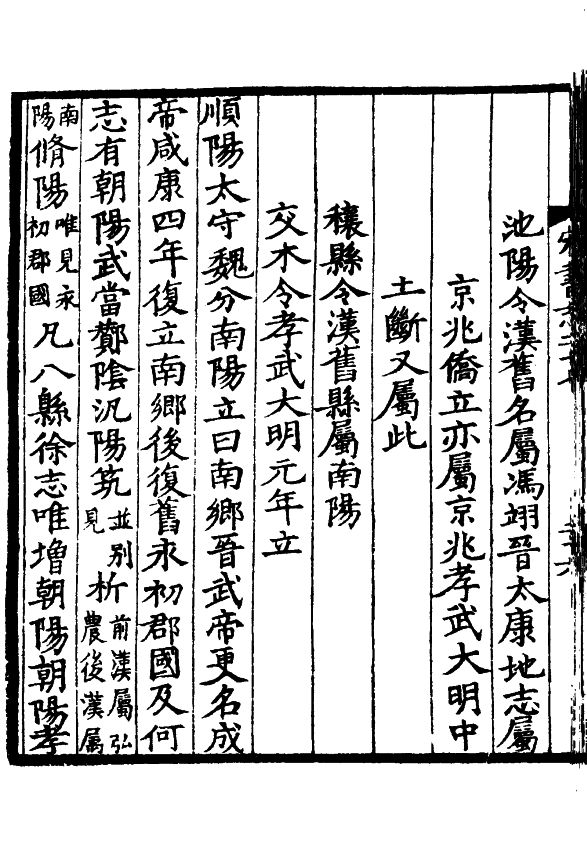 池陽令漢舊名屬馮翊晉太康地志屬
京兆僑立亦屬京兆孝武大明中
土斷又屬此
穰縣令漢舊縣屬南陽
交木令孝武大明元年立
順陽太守魏分南陽立曰南鄉晉武帝更名成
帝咸康四年復立南鄉後復舊永初郡國及何
志有朝陽武當酇陰汎陽筑並別見析前漢屬弘農後漢属
南陽脩陽唯見永初郡國凡八縣徐志唯增朝陽朝陽孝